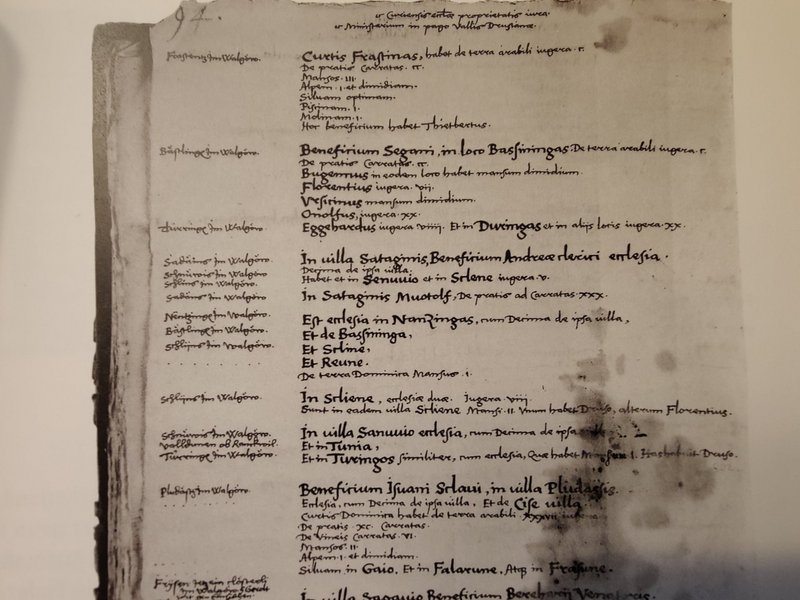 94.
Curiensis ecclae proprietatis iura.
Ministerium in pago Vallis Drusianae.
Frastentz Im Walgöw.
Curtis Frastinas, habet de terra arabili iugera. c.
De pratis Carratas. cc.
Mansos. III.
Alpem. I. et dimidiam.
Siluam optimam.
Piscinam. I.
Molinam. I.
Hoc beneficium habet Thietbertus.
Im Walgöw.
Beneficium Segani, in loco Bassiningas. De terra arabili iugera. c.
De pratis Carratas. cc.
in eodem loco habet mansum dimidium.
Florentius iugera. VII.
Vrsicinus mansum dimidium.
Onolfus, iugera. XX.
Türringe Im Walgöw.
Eggehardus iugera VIIII. Et in Duringas et in alijs locis iugera. XX.
Im Walgöw.
In villa Sataginis, Beneficium Andreae clerici ecclesia.
Schnüvis Im Walgöw
Decima de ipsa villa.
Schlins Im Walgöw.
Habet et in Senuuio et in Sclene iugera. V.
Im Walgöw
In Sataginis Muotolf, De pratis ad Carratas. XXX.
Nentzinge Im Walgöw.
Est ecclesia in Nanzingas, cum Decima de ipsa villa,
Im Walgöw.
Et de Bassininga,
Im Walgöw.
Et Scline,
Et Reune.
De terra Dominica Mansus. I.
Schlins Im Walgöw.
In Scliene, ecclesiae duae. Iugera VIII.
Sunt in eadem villa Scliene Mansi. II. Vnum habet Druso, alterum Florentius.
Schnüvis Im Walgöw.
In villa Sanuuio ecclesia, cum Decima de ipsa
Et in Tunia,
Türringe Im Walgöw.
Et in Turingos similiter, cum ecclesia, Quae habet Mansum I. Druso.
Im Walgöw.
Beneficium Isuani Sclaui, in villa Pludassis.
Ecclesia, cum Decima de ipsa villa, Et de Cise villa.
Curtis Dominica habet de terra arabili
De pratis XC. Carratas.
De Vineis Carratas. VI.
Mansos. II.
Alpem. I. et dimidiam.
Siluam in Gaio, Et in Falarune, Atq in Frasune.
Im Walgöw
In villa Beneficium